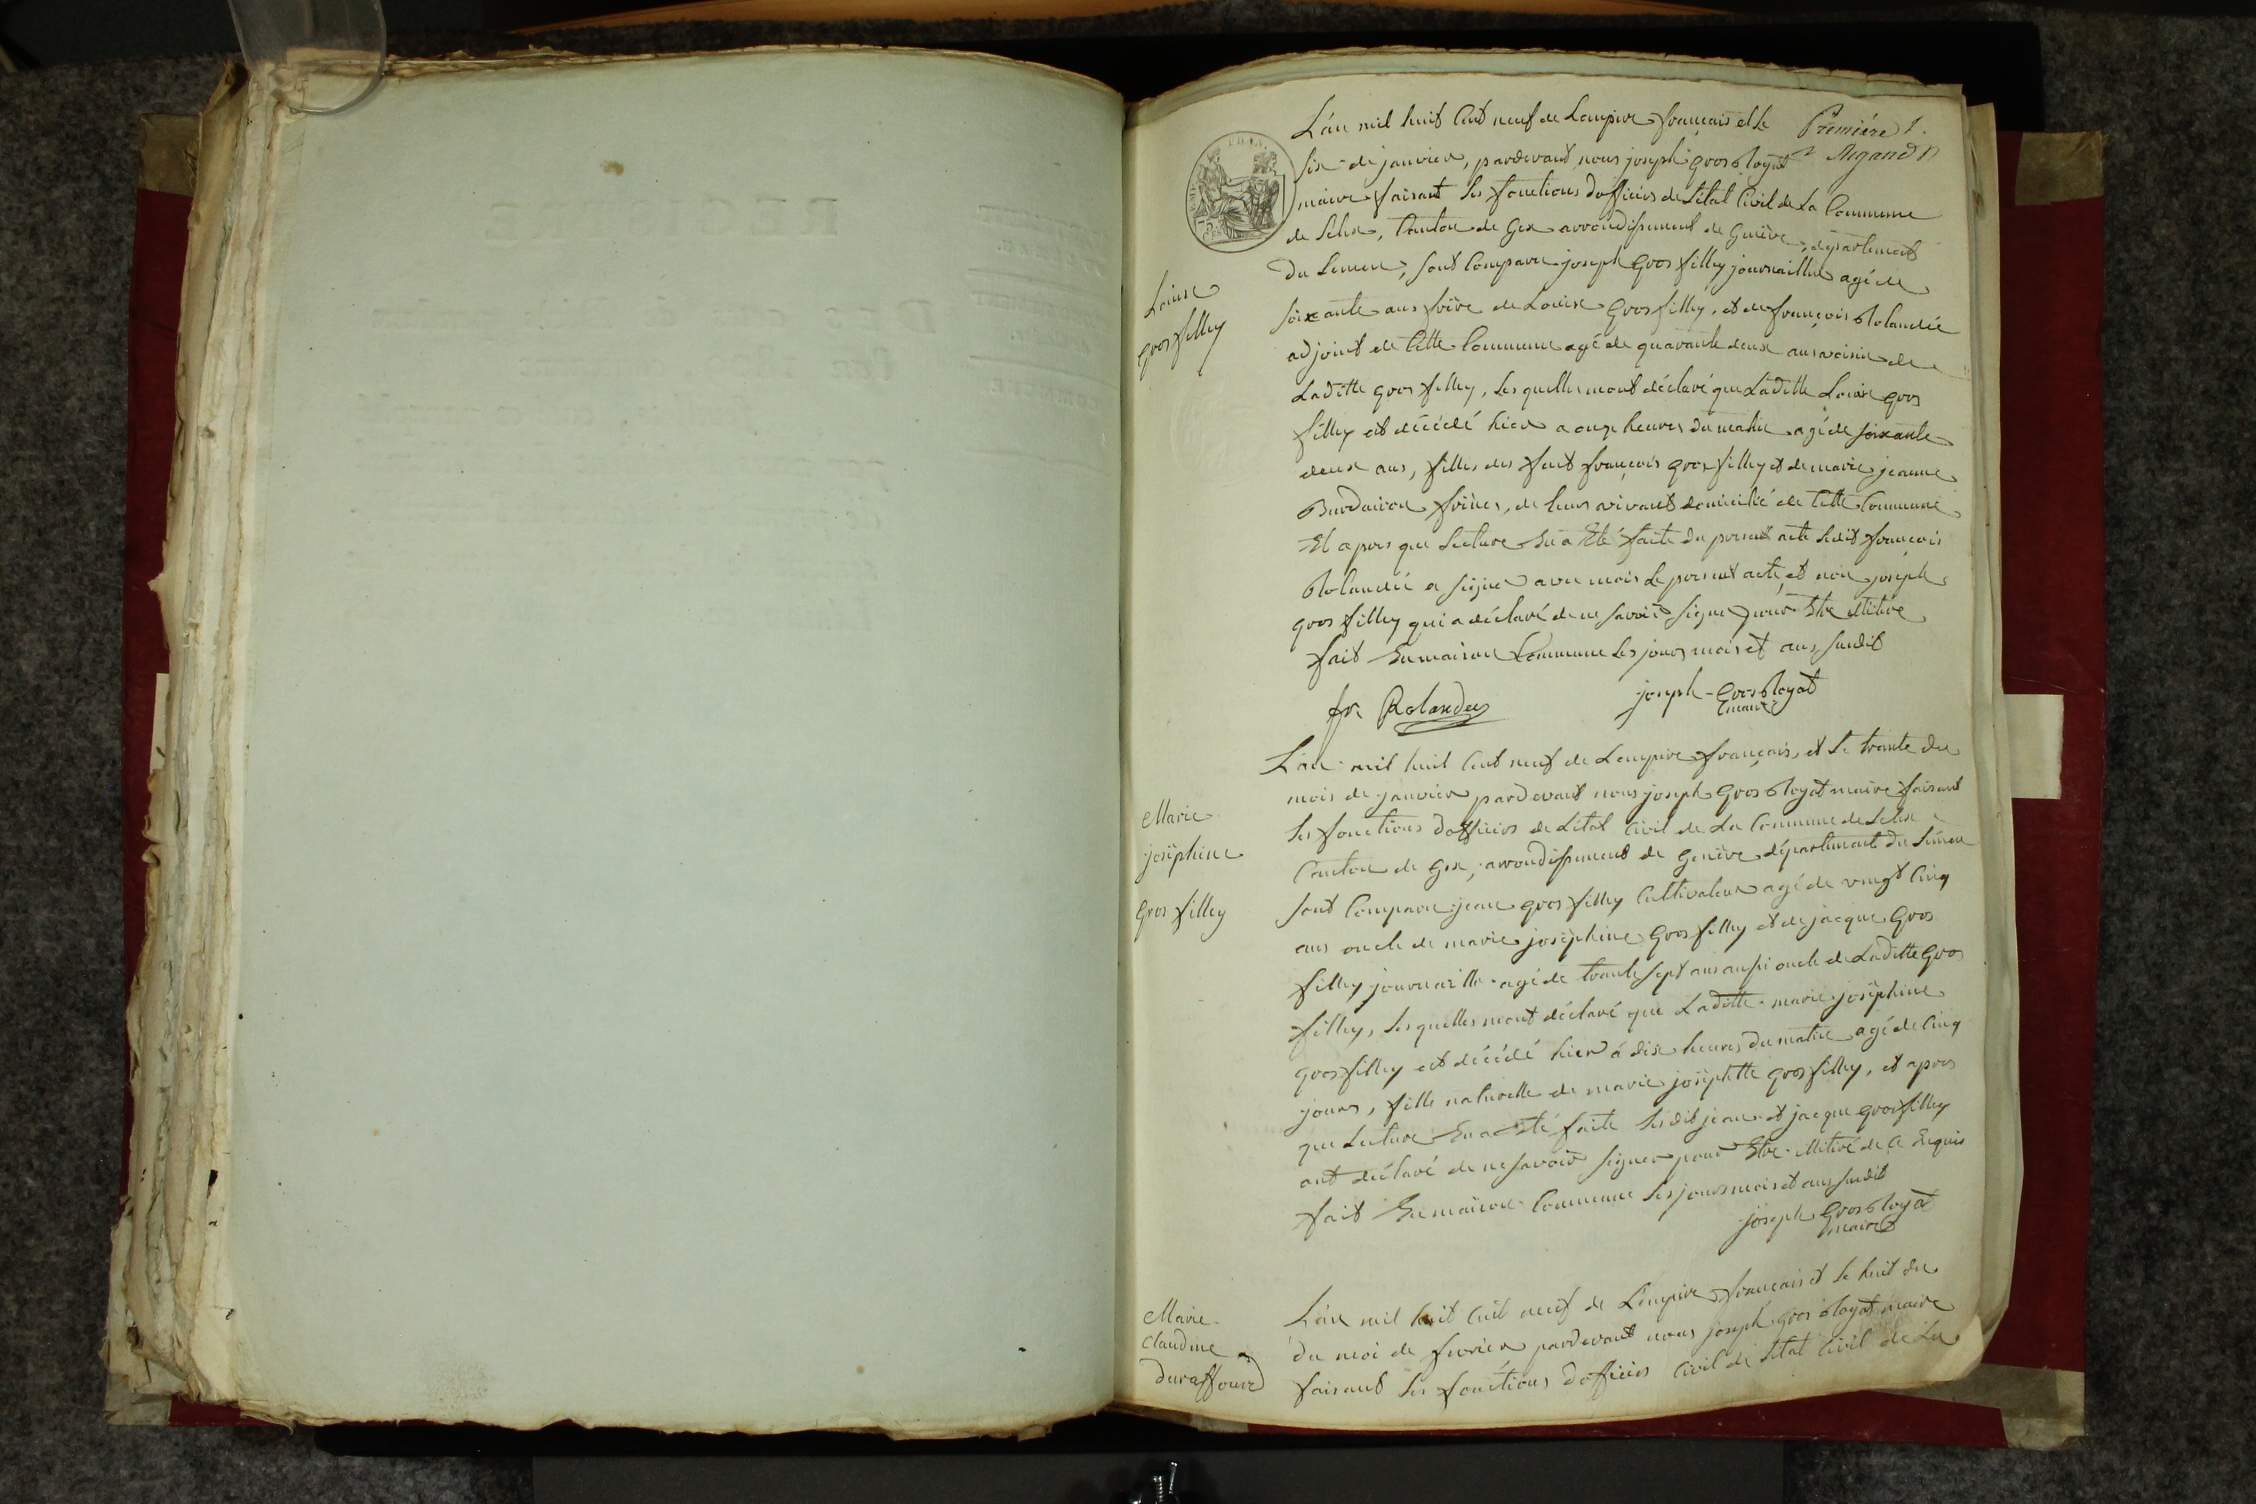 L'an mil huit Cent neuf de Lempire français et le
Première 1.
six de janvier, pardevant nous joseph gros Royat
maire faisant les fonctions dofficiers de Létat Civil de La Commune
de Lelex, Canton de Gex arrondissement de Genève, département
Du Leman, sont Comparu joseph Gros filley journaillier agé de
soixante ans frère de Louise Gros filley, et de françois Rolandée
adjoint de Cette Commune agé de quarante deux ans voisin de
Laditte gros filley, Lesquelles mont déclaré que Laditte Louise gros
filley est décédé hier a onze heures du matin agé de soixante
deux ans, filles des feut françois gros filley et de marie jeanne
frines, de leurs vivants domicilié de Cette Commune
Et apres que Lecture En a Eté faite du present acte Ledit françois
Rolandée a signé avec mois Le present acte, et non joseph
gros filley qui a déclaré de ne savoir signer pour Etre illitéré
fait En maison Commune Les jours mois et ans susdit
fr. Rolandez
joseph Gros Royat
maire
Louise
gros filley
L'an mil huit Cent neuf de Lempire français, et le trante du
mois de janvier pardevant nous joseph Gros Royat maire faisant
les fonctions dofficiers de Létat Civil de La Commune de Lelex
Canton de Gex, arrondissement de Genève département du Léman
sont Comparu jean gros filley Cultivateur agé de vingt Cinq
ans oncle de marie joséphine Gros filley et de jacque Gros
filley journaille agé de trante sept ans aussi oncle de Laditte Gros
filley, Lesquelles mont déclaré que Laditte marie joséphine
gros filley est décédé hier à dix heures du matin agé de Cinq
jours, fille naturelle de marie joséphtte gros filley, et apres
que Lecture En a Eté faite Lesdit jean et jacque gros filley
ont déclaré de ne savoir signer pour Etre illitéré de Ce Enquis
fait En maison Commune Les jours mois et ans susdit
joseph Gros Royat
maire
Marie
joséphine
Gros filley
L'an mil huit Cent neuf de Lempire français et le huit du
du moi de fevrier pardevant nous joseph gros Royat maire
faisant les fonctions dofficiers Civil de Létat Civil de La
Marie
Claudine
Duraffourd